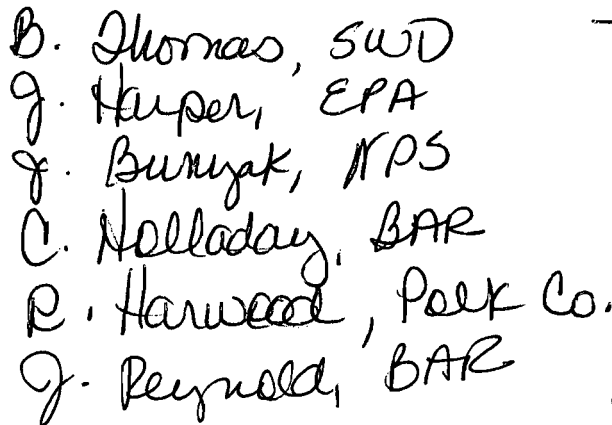 B. Thomas, SWD
J. Harper, EPA
J. Bunyak, NPS
C. Holladay, BAR
R. Harwood, Polk Co.
J. Reynold, BAR